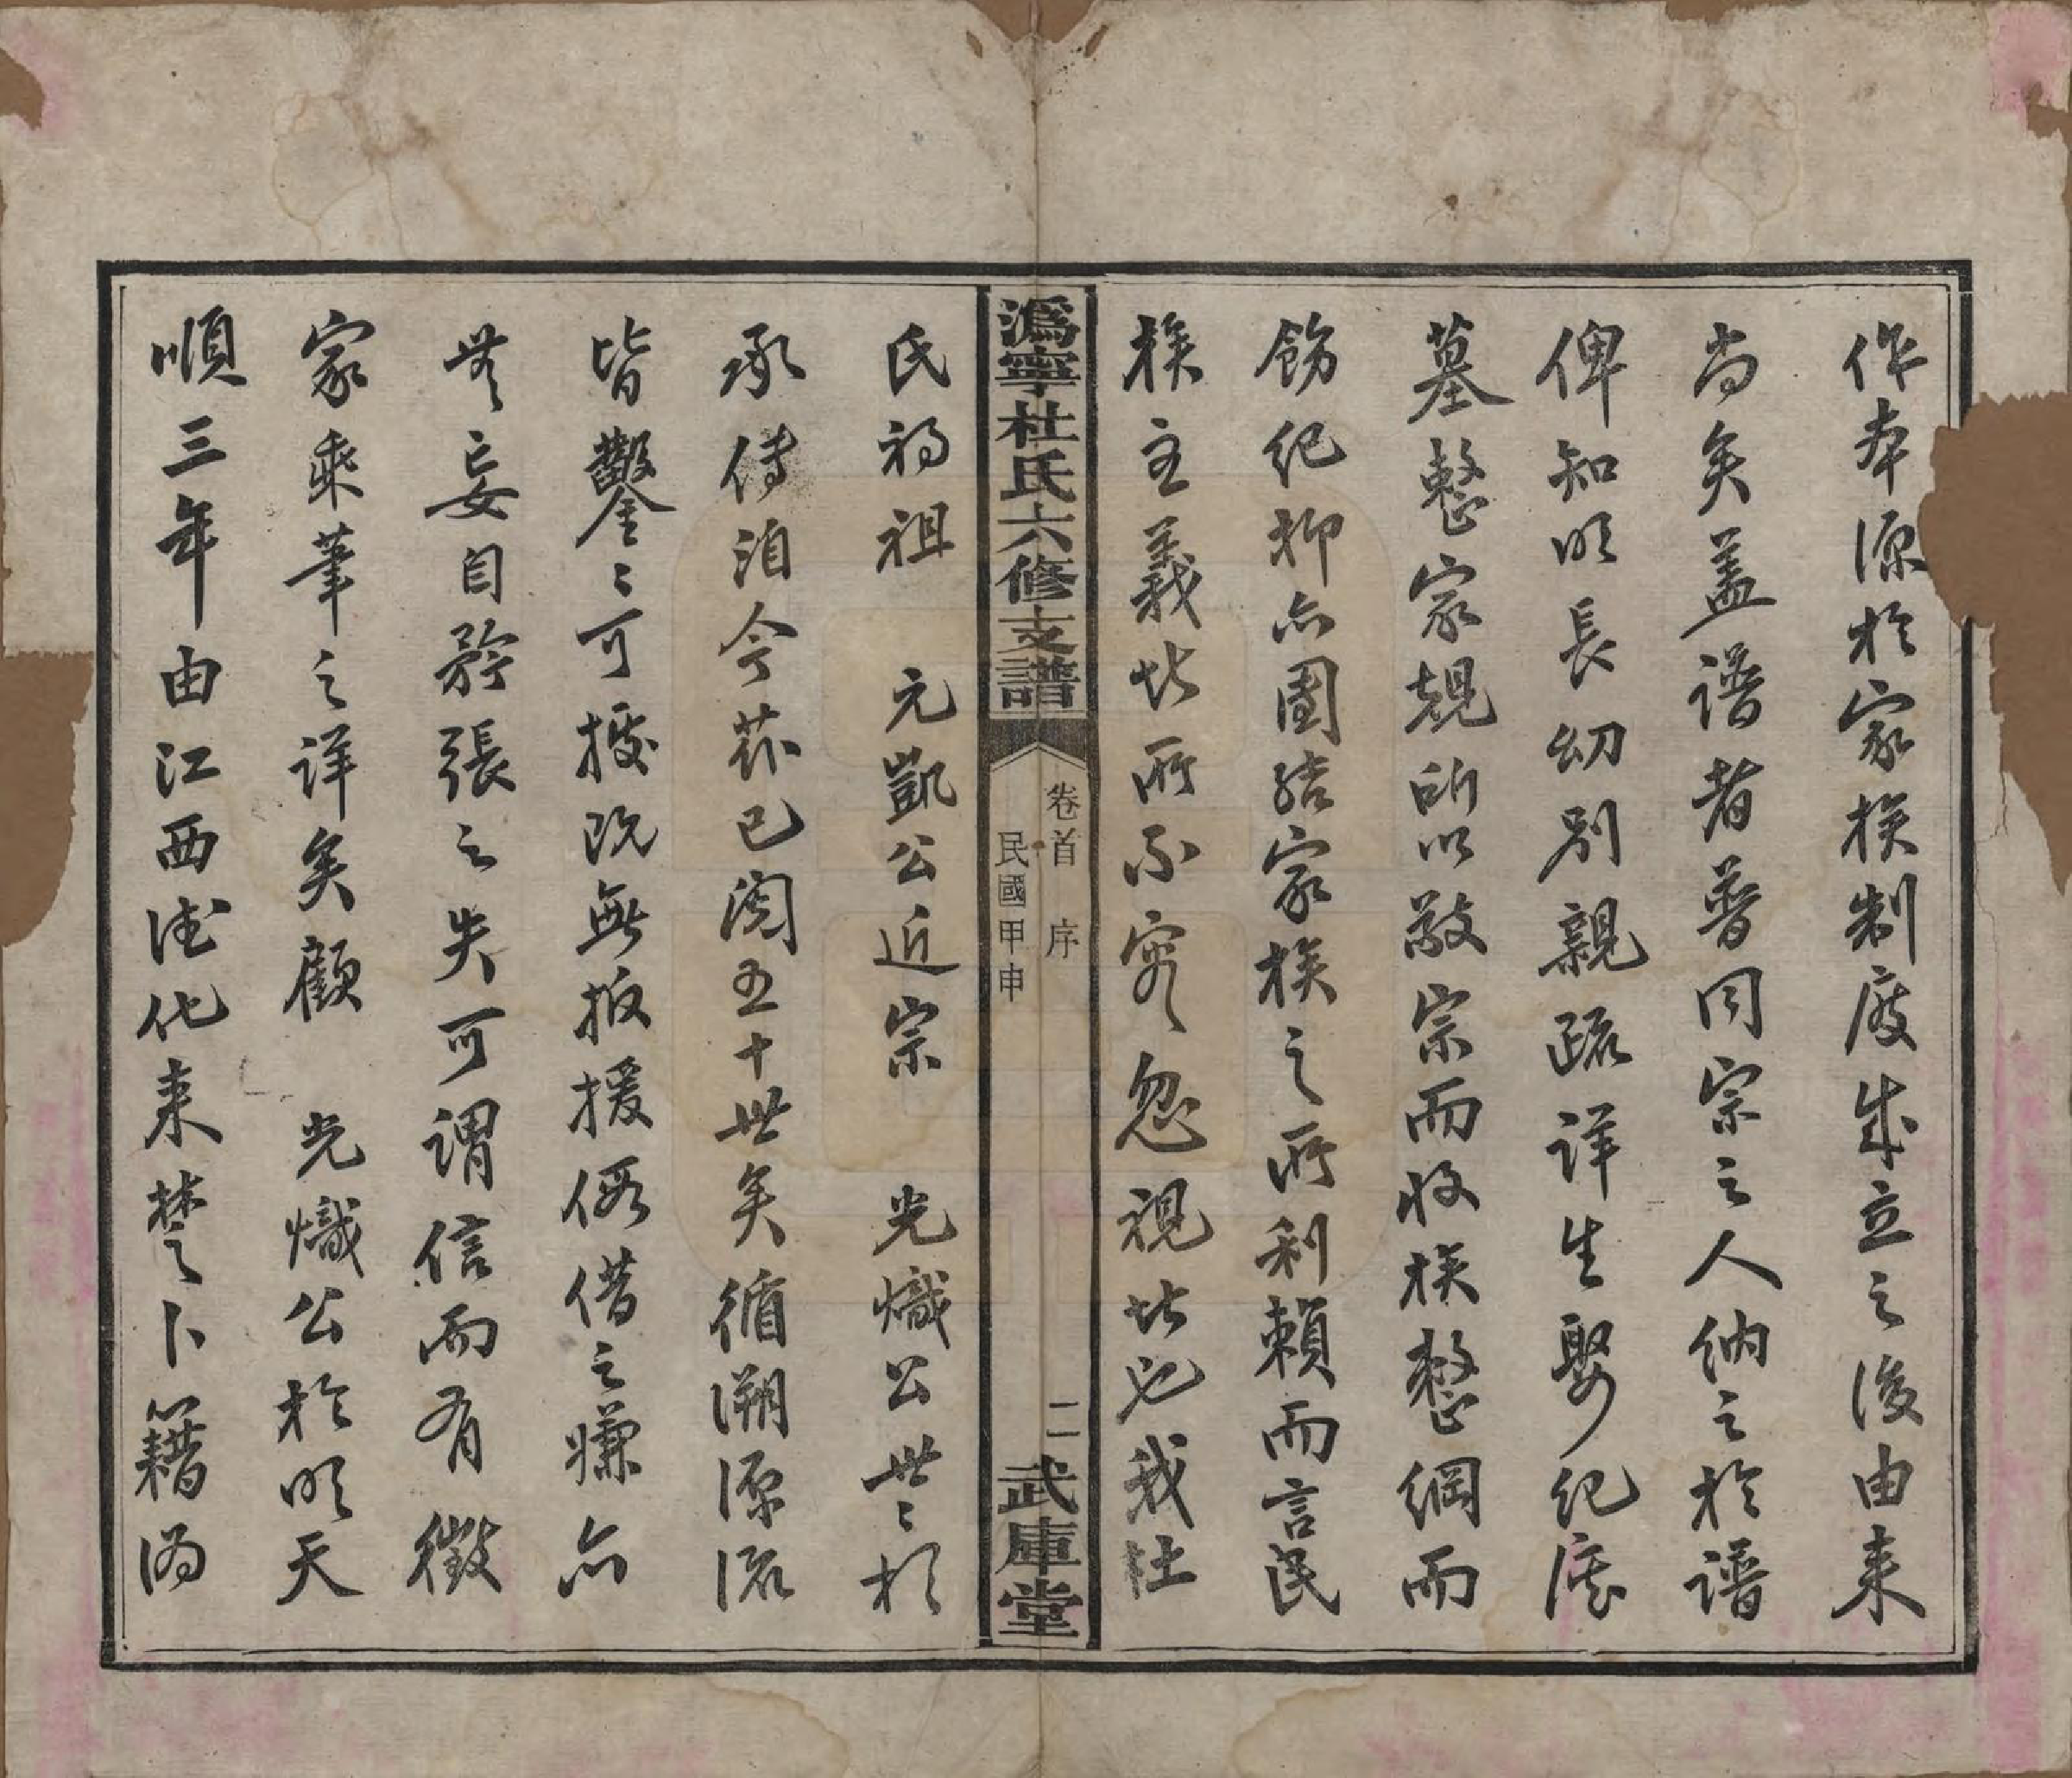 作本源於家族制度成立之後由来
尚矣盖譜者普同宗之人納之於譜
俾知明長幼別親疏詳生娶紀
墓整家規所以敬宗而收族整綱而
飭紀抑亦團結家族之所利賴而言民
族主義皆所不容忽視者也我杜
溈寧杜氏六修支譜
卷首 序
民國甲申
二
武庫堂
氏初祖 元凱公近宗 光熾公世〻相
承傳洎今茲已閱五十世矣循溯源流
皆鑿〻可據既無扳援假借之嫌亦
無妄自矜張之失可謂信而有徵
家乘筆之詳矣顧 光熾公於明天
順三年由江西德化来楚卜籍溈